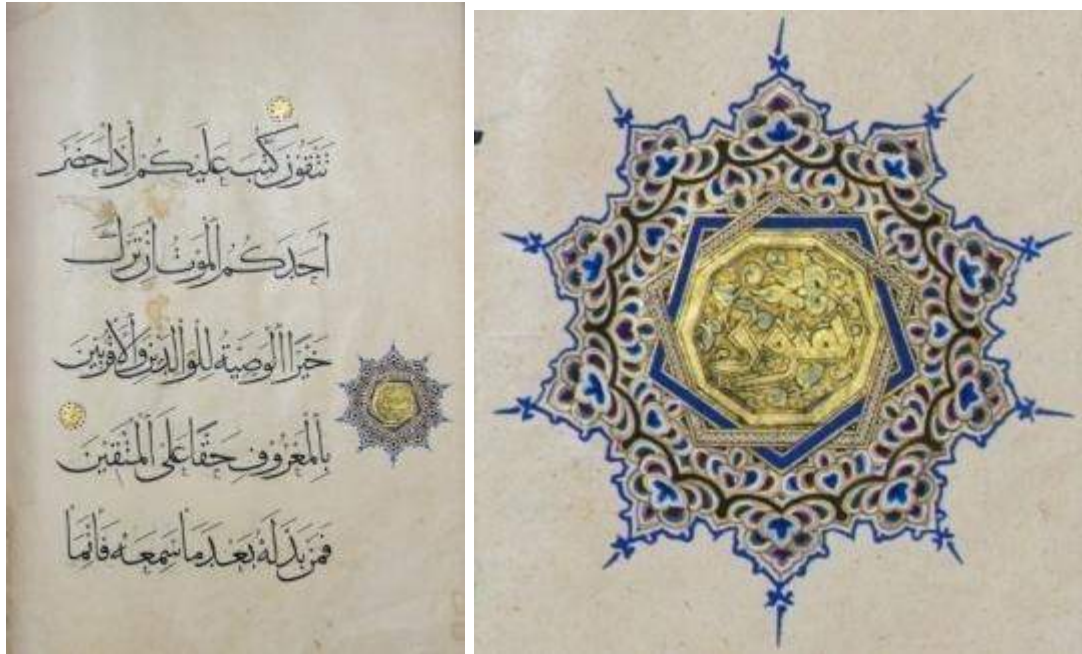 تَتَّقُونَ كُتِبَ عَلَيْكُمْ إِذَا حَضَرَ
أَحَدَكُمُ الْمَوْتُ إِنْ تَرَكَ
خَيْرًا الْوَصِيَّةُ لِلْوَالِدَيْنِ وَالْأَقْرَبِينَ
بِالْمَعْرُوفِ حَقًّا عَلَى الْمُتَّقِينَ
فَمَنْ بَدَّلَهُ بَعْدَ مَا سَمِعَهُ فَإِنَّمَا